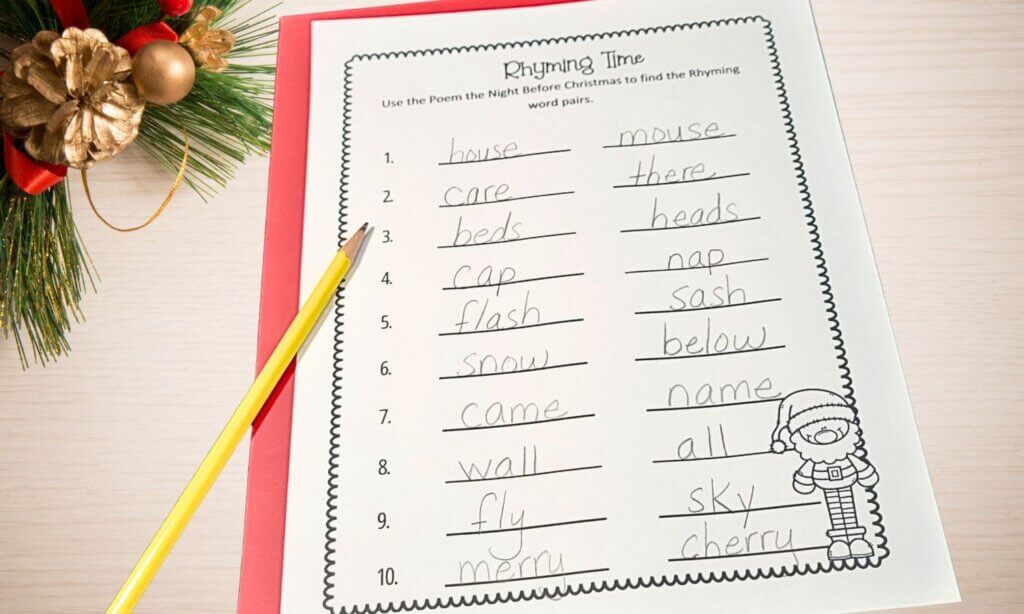 Rhyming Time
Use the Poem the Night Before Christmas to find the Rhyming
word pairs.
1. house mouse
2. care there
3. beds heads
4. cap nap
5. flash sash
6. snow below
7. came name
8. wall all
9. fly sky
10. merry cherry